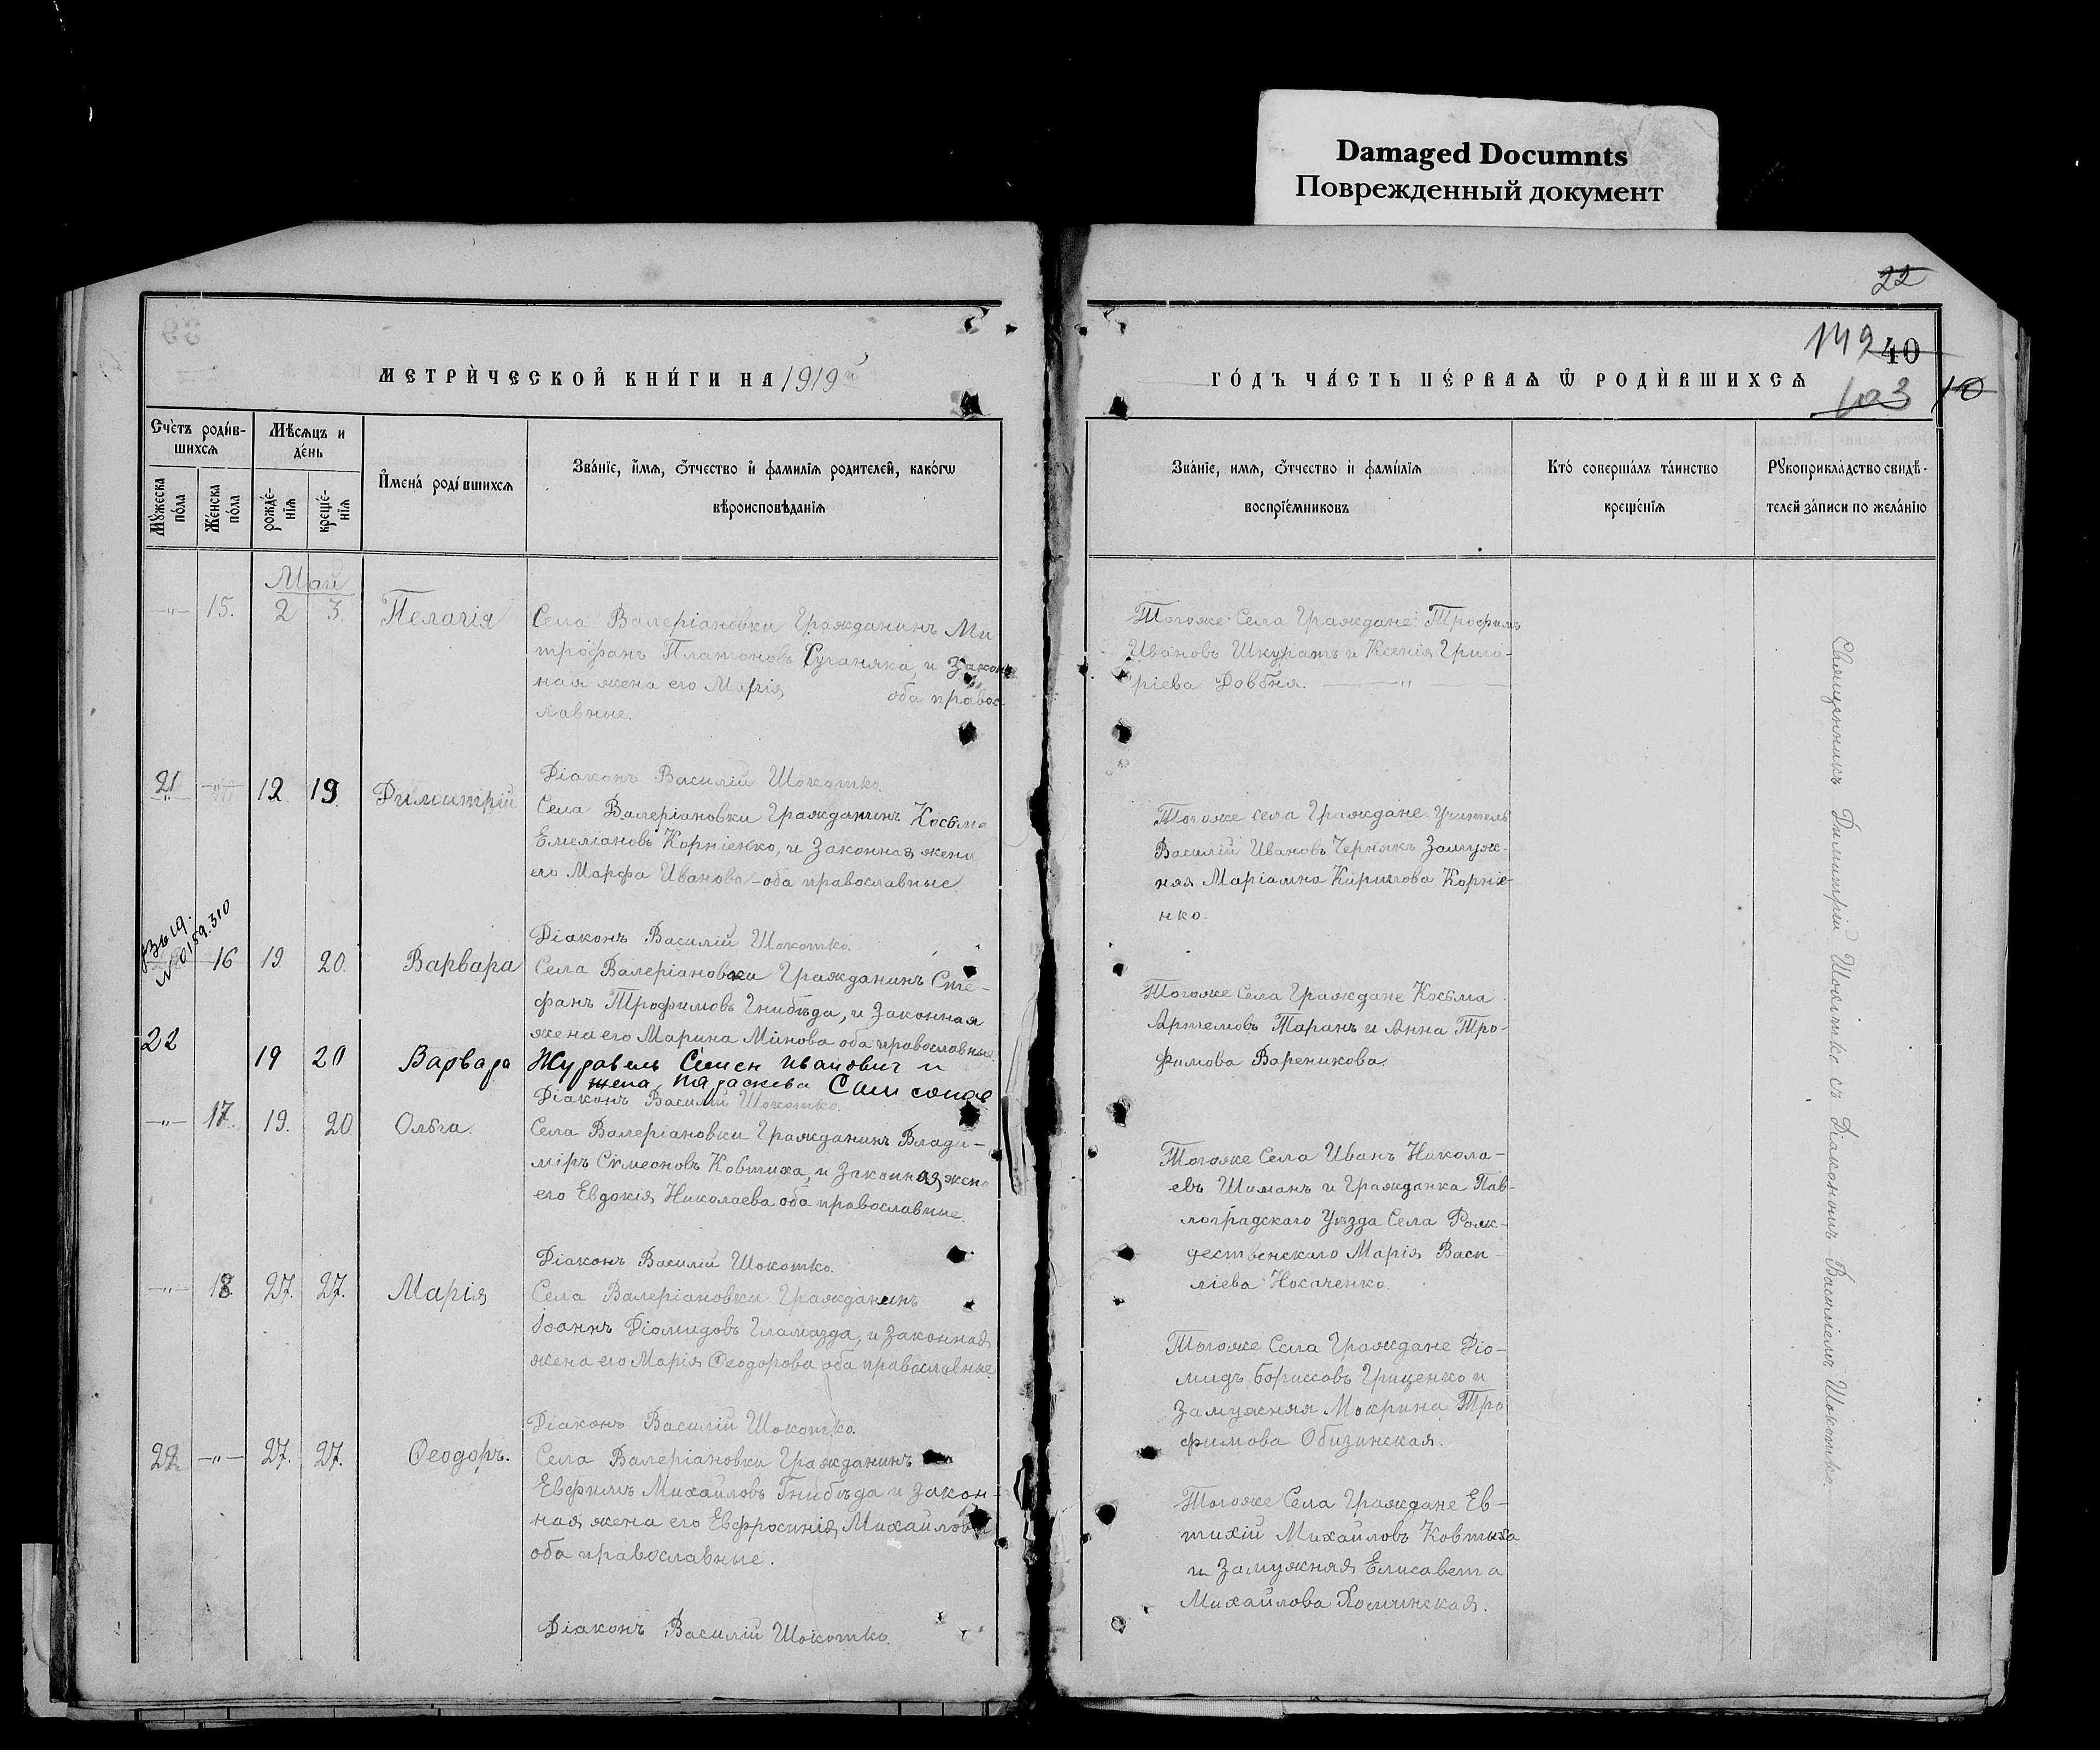 Damaged Documnts
Поврежденный документ
22
МЕТРИЧЕСКОЙ КНИГИ НА 1919й
ГОДЪ ЧАСТЬ ПЕРВАЯ Ѿ РОДИВШИХСЯ
149
40
103
10
Счетъ родив-
шихся
Мѣсяцъ и
день
Мужеска
пола
Женска
пола
рожде-
нія
креще-
нія
Имена родившихся
Званіе, имя, отчество и фамилія родителей, какогѡ
вѣроисповѣданія
Званіе, имя, отчество и фамилія
воспріемниковъ
Кто совершалъ таинство
крещенія
Рукоприкладство свидѣ-
телей записи по желанію
Май
-"- 15. 2 3. Пелагія
Села Валеріановки Гражданинъ Ми
трофанъ Платоновъ Суганяка, и Закон
ная жена его Марія оба правос
лавные.
Діаконъ Василій Шокотко.
Тогоже Села Граждане Трофимъ
Ивановъ Шкуратъ и Ксенія Григо-
ріева Довбня. -"-
21 -"- 12. 19. Димитрій
Села Валеріановки Гражданинъ Косьма
Емеліановъ Корніенко, и Законная жена
его Марфа Иванова - оба православные.
Діаконъ Василій Шокотко.
Тогоже села Граждане Учитель
Василій Ивановъ Чернякъ Замуж-
няя Маріамна Кирилова Корніе-
нко.
16 19. 20. Варвара
Села Валеріановки Гражданинъ Сте-
фанъ Трофимовъ Гнибѣда, и Законная
жена его Марина Минова оба православные.
Тогоже Села Граждане Косьма
Артемовъ Таранъ и Анна Тро-
фимова Вареникова.
22 19 20 Варвара
Журавель Семен Иванович и
жена Параскева
Діаконъ Василій Шокотко.
-"- 17. 19. 20 Ольга.
Села Валеріановки Гражданинъ Влади-
міръ Симеоновъ Ковтиха, и Законная жена
его Евдокія Николаева оба православные.
Діаконъ Василій Шокотко.
Тогоже Села Иванъ Никола-
евъ Шиманъ и Гражданка Пав-
лоградскаго Уѣзда Села Рож-
дественскаго Марія Васи-
ліева Носаченко.
-"- 18 27. 27. Марія
Села Валеріановки Гражданинъ
Іоаннъ Діомидовъ Гламазда, и Законная
жена его Марія Ѳеодорова оба православные.
Діаконъ Василій Шокотко.
Тогоже Села Граждане Діо-
мидъ Борисовъ Гриценко и
Замужняя Мокрина Тро
фимова Обизинская.
22 -"- 27. 27. Ѳеодоръ.
Села Валеріановки Гражданинъ
Евфимъ Михайловъ Гнибѣда и Закон-
ная жена его Евфросинія Михайлова
оба православные.
Діаконъ Василій Шокотко.
Тогоже Села Граждане Ев-
тихій Михайловъ Ковтиха
и Замужняя Елисавета
Михайлова Хоминская.
Священникъ Димитрій Шокотко съ Діакономъ Василіемъ Шокотко.